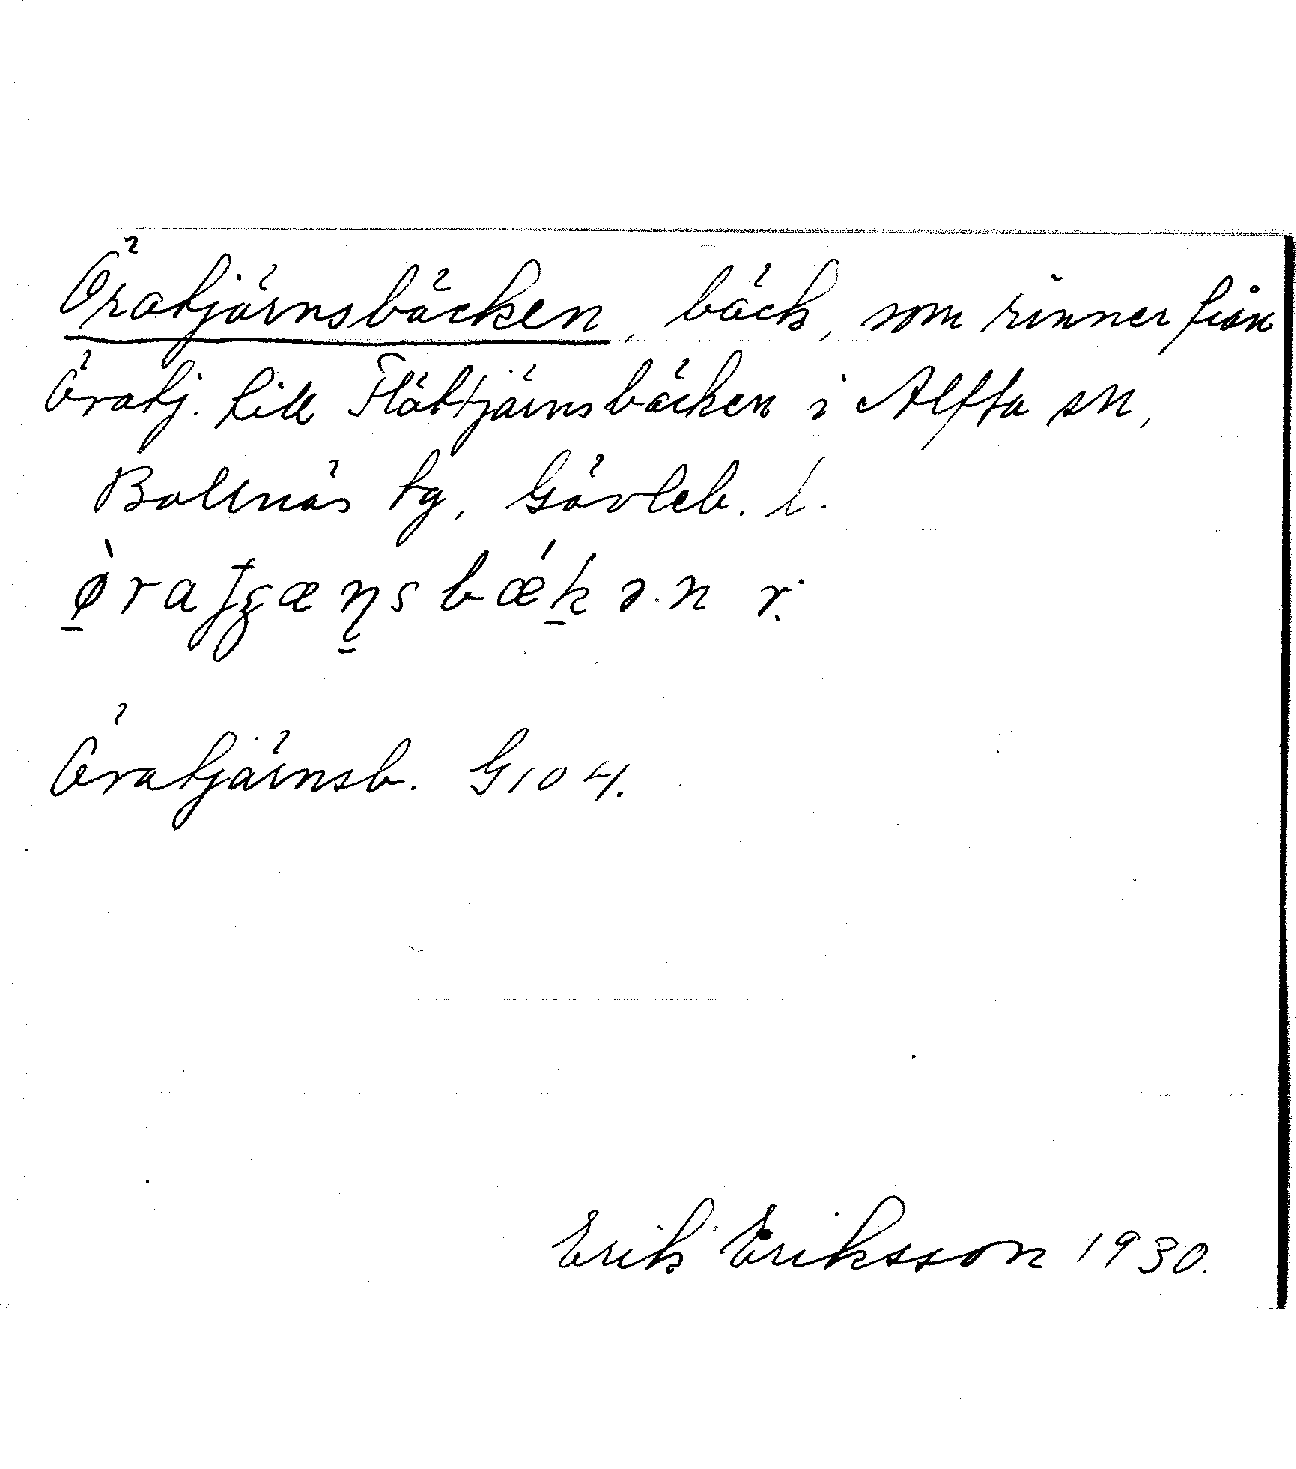 Öratjärnsbäcken, bäck, som rinner från
Öratj. till Flättjärnsbäcken i Alfta sn,
Bollnäs tg, Gävleb. l.
Öratjärnsb. G104.
Erik Eriksson 1930.